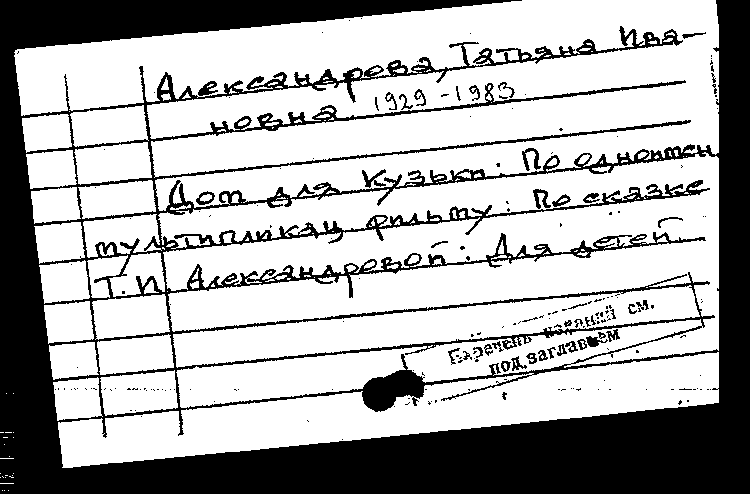 Александрова, Татьяна Ива-
новна. 1929-1983
Дом для Кузьки: По одноимен.
мультипликац. фильму: По сказке
Т.И. Александровой: Для детей.
Перечень изданий см.
под заглавием